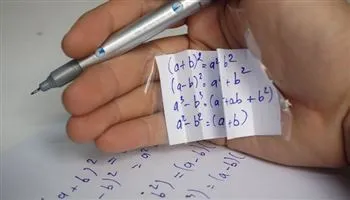 (a+b)²=a²b²
(a-b)²=a²+b²
a³-b³=(a²+ab+b²)
a²-b²=(a+b)
a+b)²=
-b)²=a²
b²)=(a-b)(
)=(a-b)(